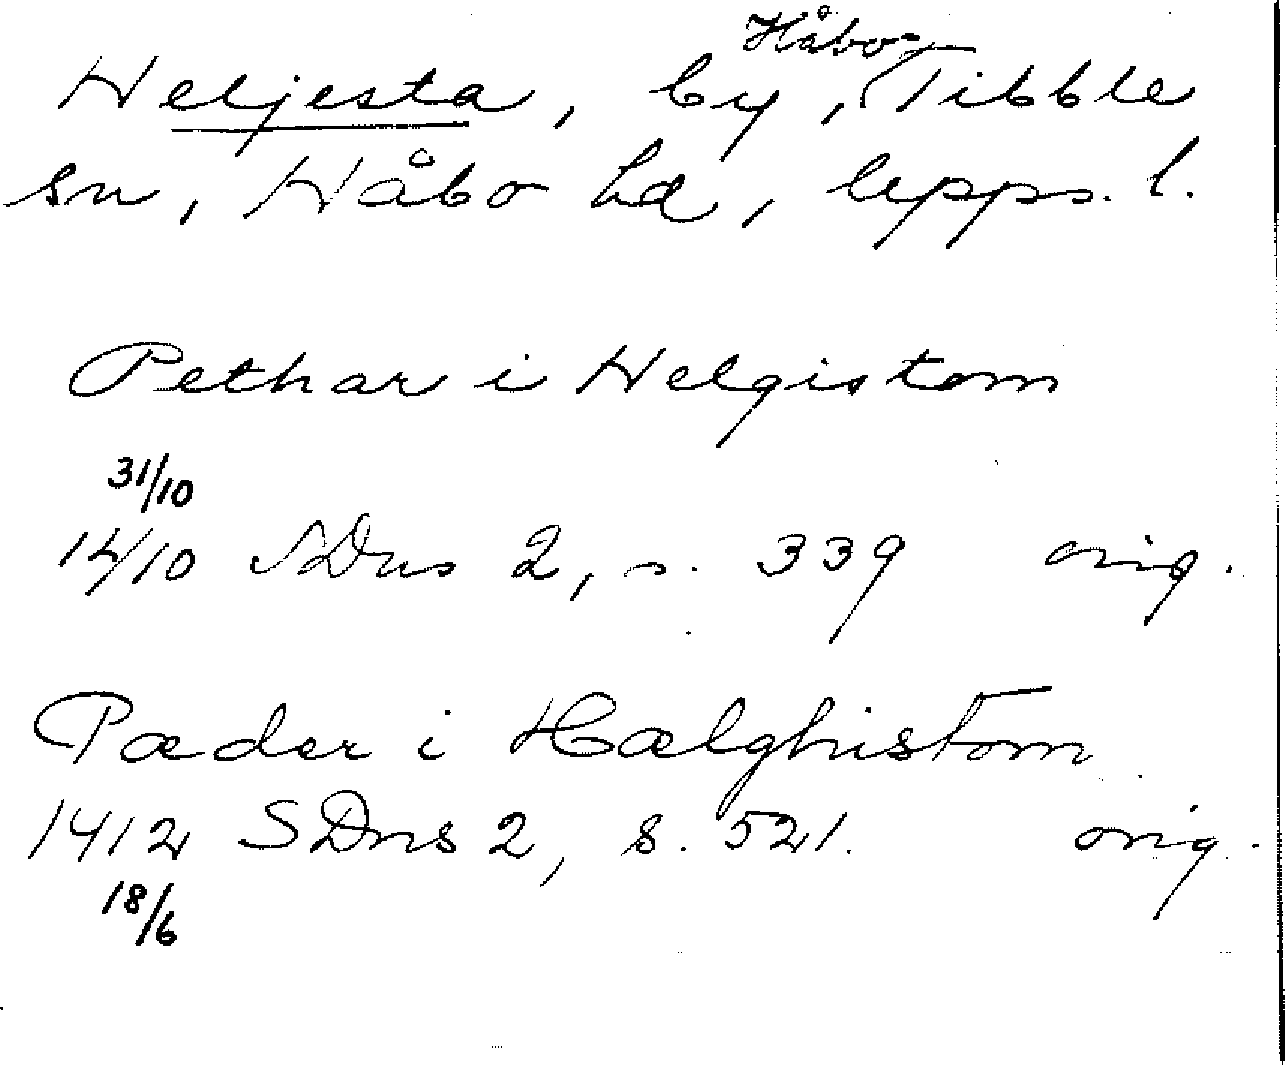 Heljesta, by, Håbo-Tibble
sn, Håbo hd, Upps. l.
Pethar i Helgistom
31/10
1410 SDns 2, s. 339 orig.
Pæder i Hælghistom
1412 SDns 2, s. 521. orig.
18/6